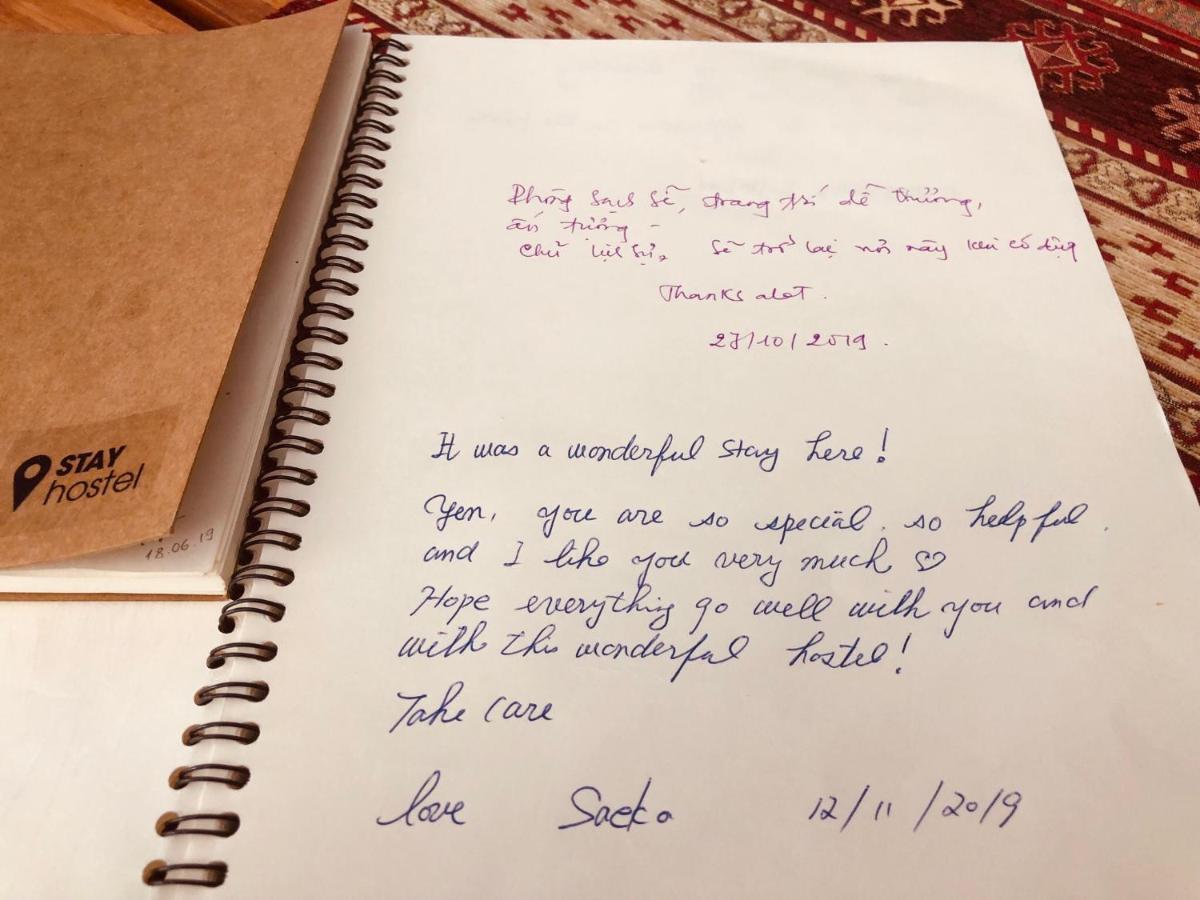 STAY
hostel
18.06.19
Phòng sạch sẽ, trang trí dễ thương,
ấn tượng -
Chủ lịch sự, sẽ trở lại nơi này khi có dịp
Thanks alot.
27/10/2019.
It was a wonderful stay here!
Yen, you are so special. so helpful.
and I like you very much ♡
Hope everything go well with you and
with this wonderful hostel!
Take care
love Saeko 12/11/2019